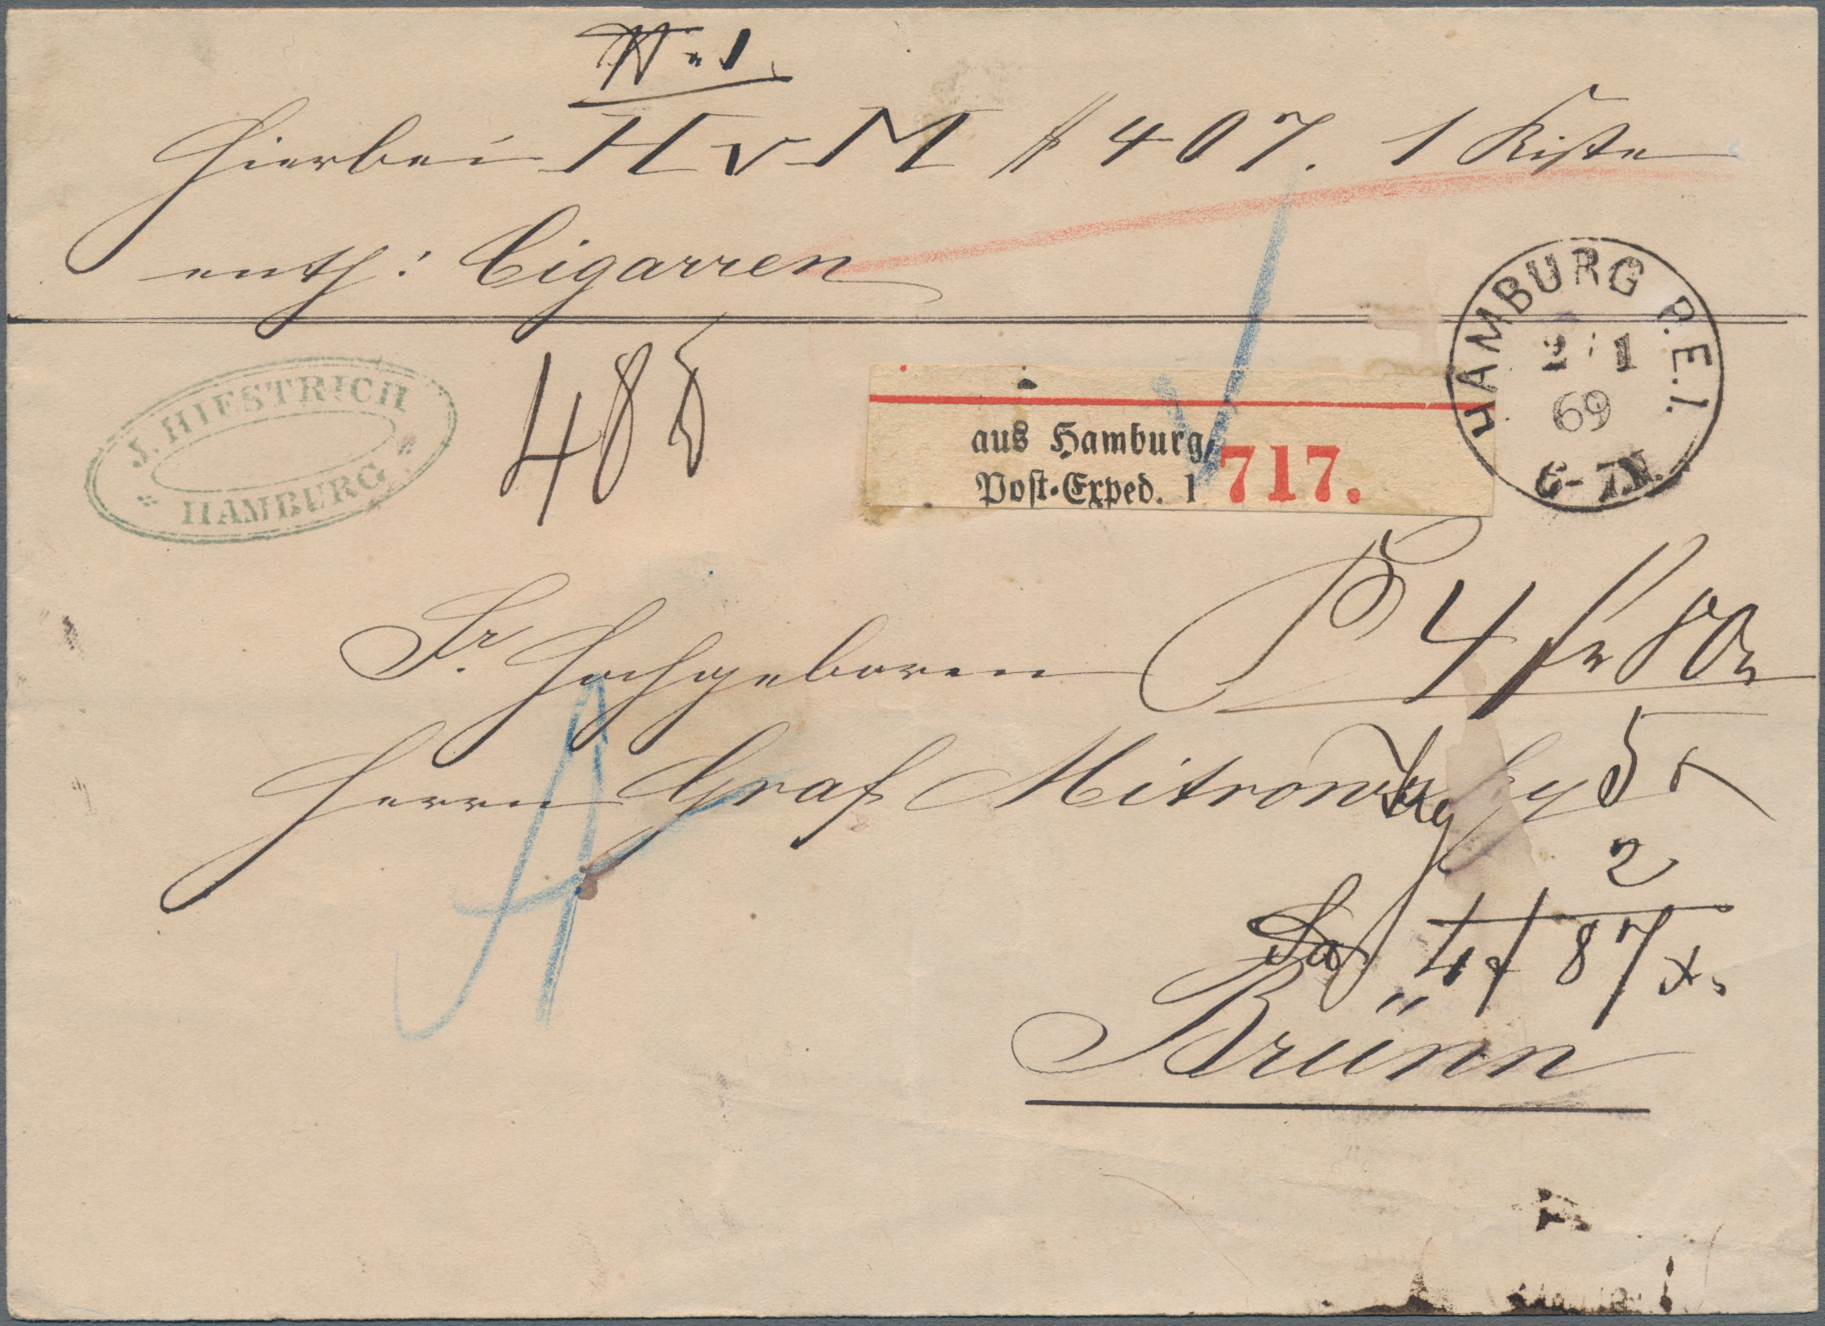 No 1
Hierbei H v M # 407. 1 Kiste
enth: Cigarren
J. HIESTRICH
HAMBURG
48
aus Hamburg
Post-Exped. 1
717.
HAMBURG P.E.I.
2 1
69
6-7N.
Sr. Hochgeboren
4 f 80
Herrn Graf Mitrowsky
5
2
4 f 87 x.
Brünn